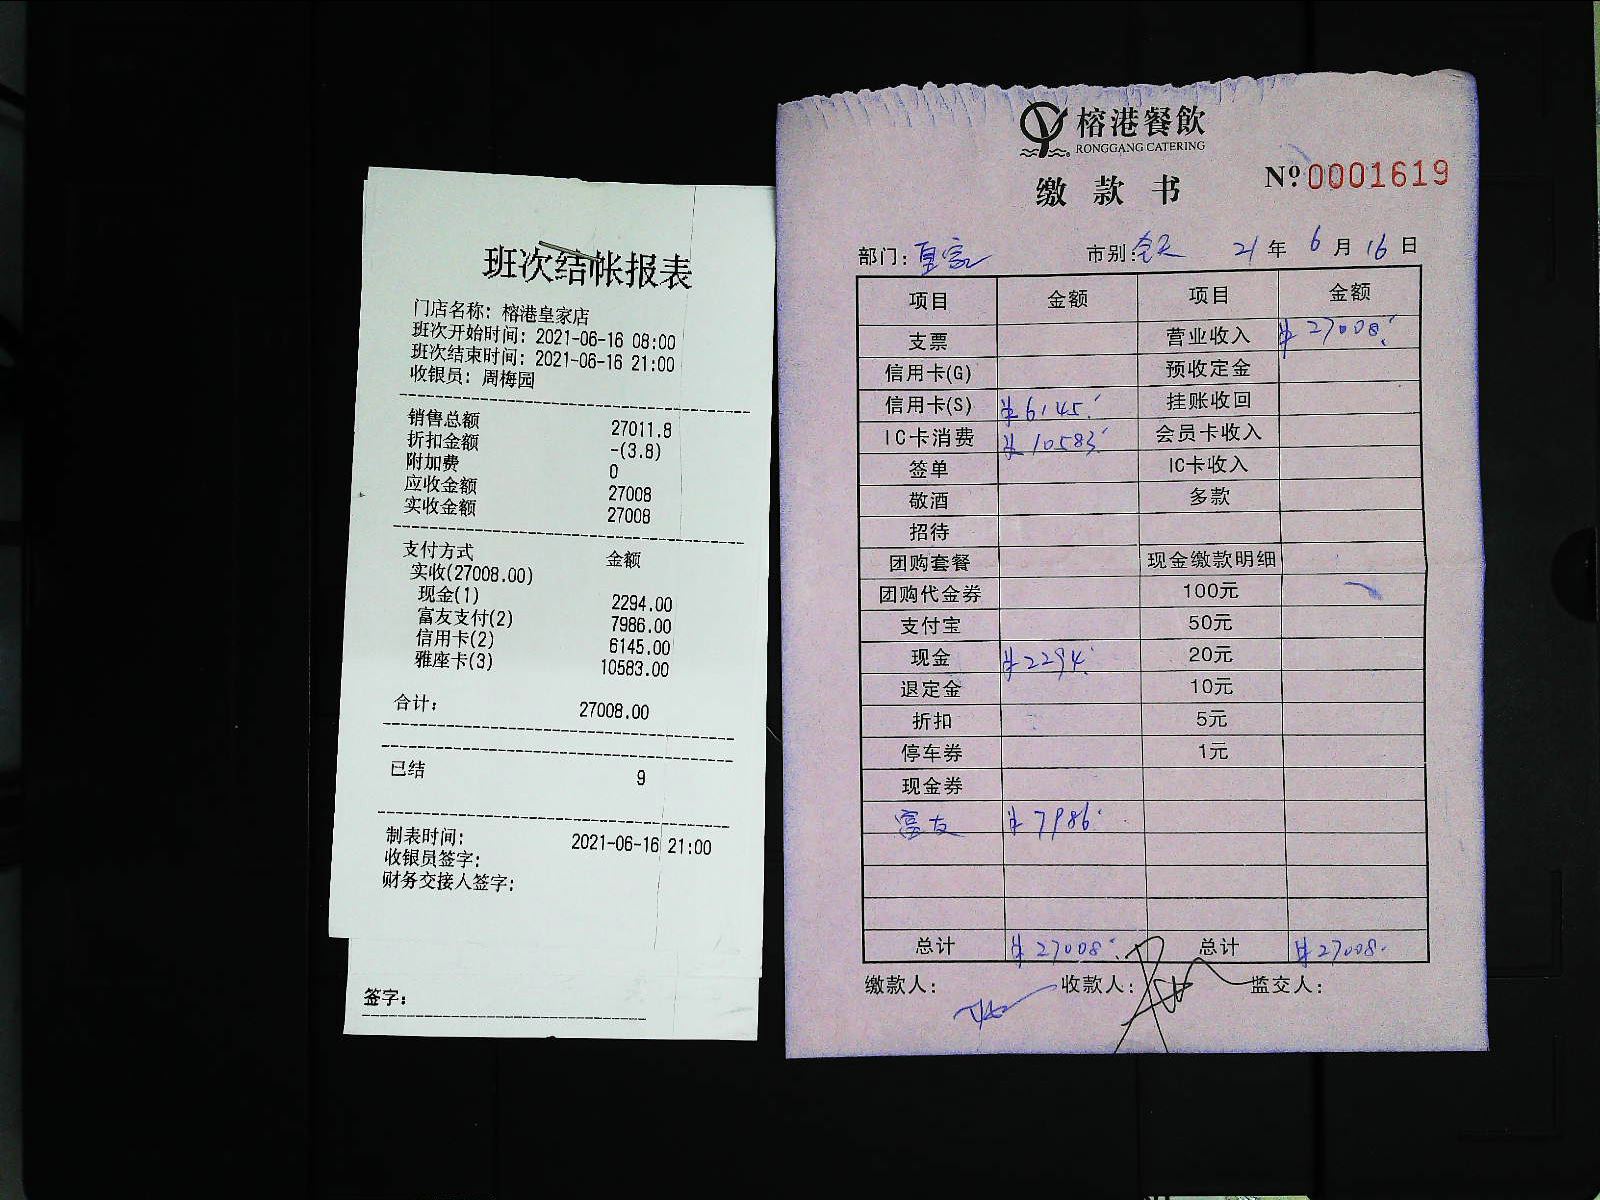 班次结帐报表
门店名称：榕港皇家店
班次开始时间：2021-06-16 08:00
班次结束时间：2021-06-16 21:00
收银员：周梅园
销售总额 27011.8
折扣金额 -(3.8)
附加费 0
应收金额 27008
实收金额 27008
支付方式 金额
实收(27008.00)
现金(1) 2294.00
富友支付(2) 7986.00
信用卡(2) 6145.00
雅座卡(3) 10583.00
合计： 27008.00
已结 9
制表时间： 2021-06-16 21:00
收银员签字：
财务交接人签字：
签字：
榕港餐飲
RONGGANG CATERING
缴款书
Nº 0001619
部门：皇家 市别：全天 21年 6月 16日
项目 金额 项目 金额
支票 营业收入 ¥27008.
信用卡(G) 预收定金
信用卡(S) ¥6145. 挂账收回
IC卡消费 ¥10583. 会员卡收入
签单 IC卡收入
敬酒 多款
招待
团购套餐 现金缴款明细
团购代金券 100元
支付宝 50元
现金 ¥2294. 20元
退定金 10元
折扣 5元
停车券 1元
现金券
富友 ¥7986.
总计 ¥27008. 总计 ¥27008.
缴款人： 收款人： 监交人：